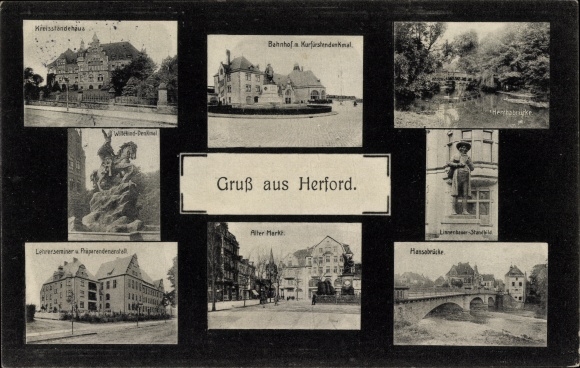 Kreisständehaus
Bahnhof u. Kurfürstendenkmal.
Wittekind-Denkmal
Gruß aus Herford.
Linnenbauer-Standbild
Lehrerseminar u. Präparandenanstalt.
Alter Markt.
Hansabrücke.